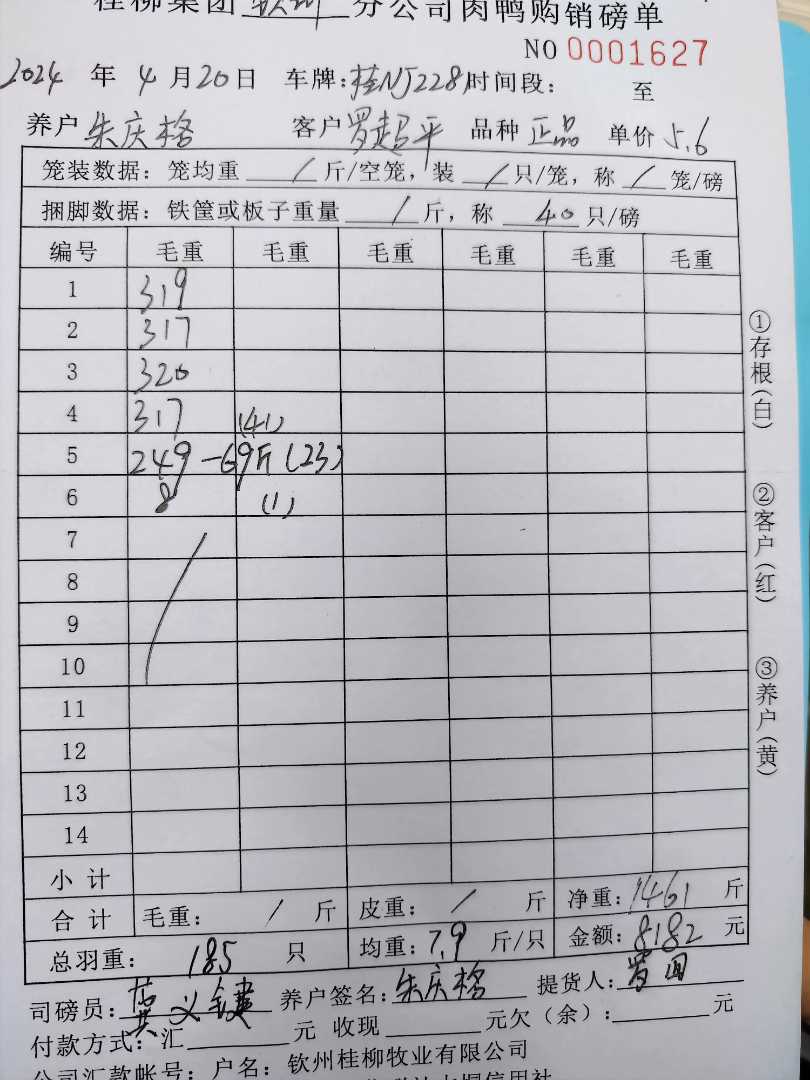 桂柳集团 钦州 分公司肉鸭购销磅单
NO 0001627
2024 年 4 月 20 日 车牌:桂NJ228 时间段: 至
养户 朱庆格 客户 罗超平 品种 正品 单价 5.6
笼装数据: 笼均重 / 斤/空笼, 装 / 只/笼, 称 / 笼/磅
捆脚数据: 铁筐或板子重量 / 斤, 称 40 只/磅
编号 毛重 毛重 毛重 毛重 毛重 毛重
1 319
2 317
3 320
4 317 (41)
5 249 -69斤 (23)
6 8 (1)
7
8
9
10
11
12
13
14
小计
合计 毛重: / 斤 皮重: / 斤 净重: 1461 斤
总羽重: 185 只 均重: 7.9 斤/只 金额: 8182 元
司磅员: 义 养户签名: 朱庆格 提货人: 罗
付款方式: 汇 元 收现 元欠(余): 元
公司汇款帐号: 户名: 钦州桂柳牧业有限公司
①存根(白)
②客户(红)
③养户(黄)